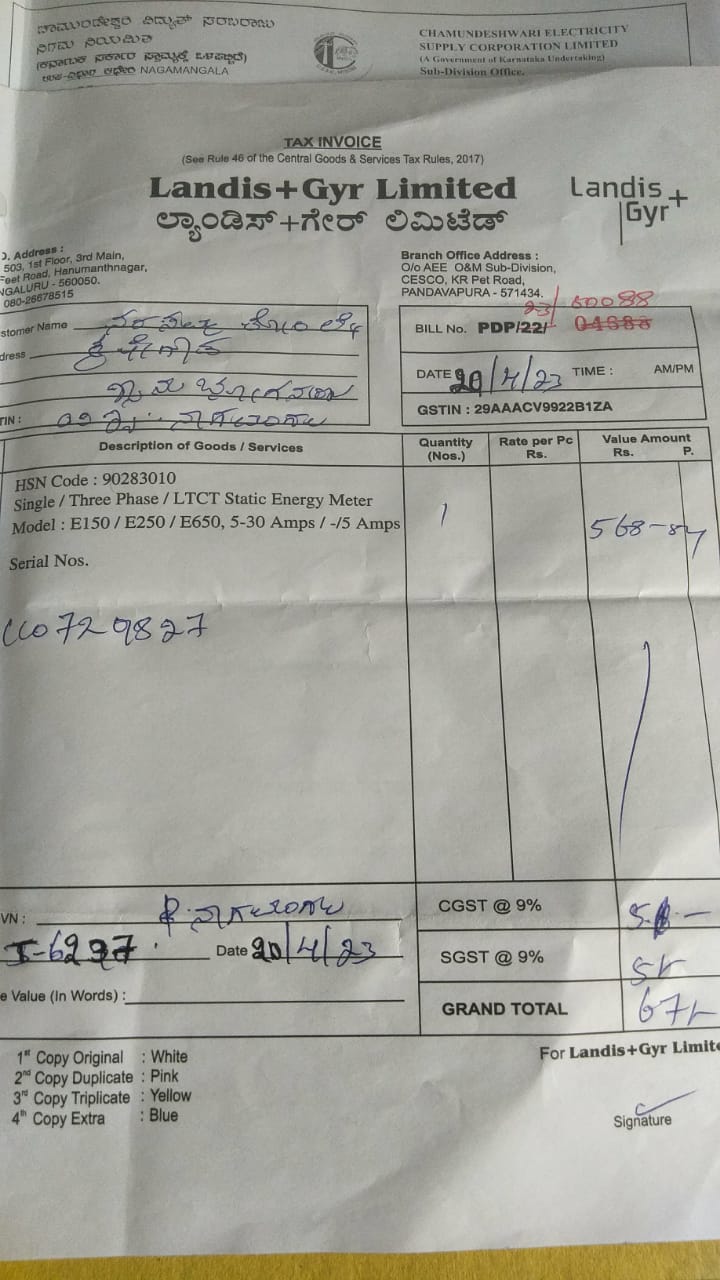 ಚಾಮುಂಡೇಶ್ವರಿ ವಿದ್ಯುತ್ ಸರಬರಾಜು
ನಿಗಮ ನಿಯಮಿತ
(ಕರ್ನಾಟಕ ಸರ್ಕಾರ ಸ್ವಾಮ್ಯಕ್ಕೆ ಒಳಪಟ್ಟಿದೆ)
NAGAMANGALA
CHAMUNDESHWARI ELECTRICITY
SUPPLY CORPORATION LIMITED
(A Government of Karnataka Undertaking)
Sub-Division Office.
TAX INVOICE
(See Rule 46 of the Central Goods & Services Tax Rules, 2017)
Landis+Gyr Limited
ಲ್ಯಾಂಡಿಸ್+ಗೇರ್ ಲಿಮಿಟೆಡ್
Landis
Gyr+
O. Address :
503, 1st Floor, 3rd Main,
Feet Road, Hanumanthnagar,
NGALURU - 560050.
080-26678515
Branch Office Address :
O/o AEE O&M Sub-Division,
CESCO, KR Pet Road,
PANDAVAPURA - 571434.
stomer Name
dress
TIN :
23/ 60088
BILL No. PDP/22/ 04688
DATE 20/4/23 TIME : AM/PM
GSTIN : 29AAACV9922B1ZA
Description of Goods / Services
Quantity (Nos.)
Rate per Pc Rs.
Value Amount Rs. P.
HSN Code : 90283010
Single / Three Phase / LTCT Static Energy Meter
Model : E150 / E250 / E650, 5-30 Amps / -/5 Amps
1
568-84
Serial Nos.
729827
VN : ನಾಗಮಂಗಲ
Date 20/4/23
e Value (In Words) :
CGST @ 9%
SGST @ 9%
GRAND TOTAL
1st Copy Original : White
2nd Copy Duplicate : Pink
3rd Copy Triplicate : Yellow
4th Copy Extra : Blue
For Landis+Gyr Limite
Signature